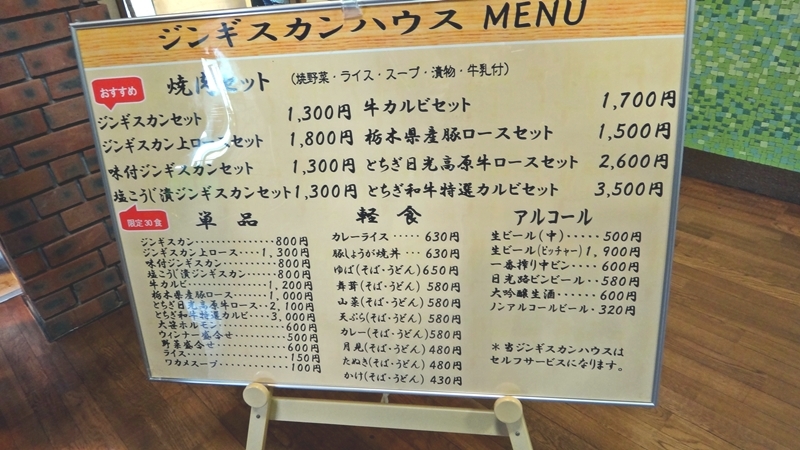 ジンギスカンハウス MENU
おすすめ
焼肉セット (焼野菜・ライス・スープ・漬物・牛乳付)
ジンギスカンセット 1,300円
ジンギスカン上ロースセット 1,800円
味付ジンギスカンセット 1,300円
塩こうじ漬ジンギスカンセット 1,300円
限定30食
牛カルビセット 1,700円
栃木県産豚ロースセット 1,500円
とちぎ日光高原牛ロースセット 2,600円
とちぎ和牛特選カルビセット 3,500円
単品
ジンギスカン・・・・・・・・・・・800円
ジンギスカン上ロース・・・・1,300円
味付ジンギスカン・・・・・・・・800円
塩こうじ漬ジンギスカン・・・・800円
牛カルビ・・・・・・・・・・・・1,200円
栃木県産豚ロース・・・・・・1,000円
とちぎ日光高原牛ロース・・2,100円
とちぎ和牛特選カルビ・・・3,000円
大笹ホルモン・・・・・・・・・・600円
ウィンナー盛合せ・・・・・・・・500円
野菜盛合せ・・・・・・・・・・・600円
ライス・・・・・・・・・・・・・・150円
ワカメスープ・・・・・・・・・・100円
軽食
カレーライス・・・・・630円
豚しょうが焼丼・・・630円
ゆば(そば・うどん)650円
舞茸(そば・うどん) 580円
山菜(そば・うどん) 580円
天ぷら(そば・うどん)580円
カレー(そば・うどん)580円
月見(そば・うどん) 480円
たぬき(そば・うどん) 480円
かけ(そば・うどん) 430円
アルコール
生ビール(中)・・・・・500円
生ビール(ピッチャー) 1,900円
一番搾り中ビン・・・・600円
日光路ビンビール・・580円
大吟醸生酒・・・・・・600円
ノンアルコールビール・320円
*当ジンギスカンハウスは
セルフサービスになります。